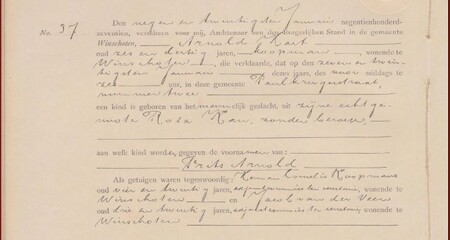 No. 37
Den negen en twintigsten Januari negentienhonderd-
zeventien, verscheen voor mij, Ambtenaar van den Burgerlijken Stand in de gemeente
Winschoten, Arnold Hart
oud zes en dertig jaren, koopman, wonende te
Winschoten, die verklaarde, dat op den zeven en twin-
tigsten Januari dezes jaars, des voor middags te
zes ure, in deze gemeente Paul Krugerstraat,
nummer twee
een kind is geboren van het mannelijk geslacht, uit zijne echtge-
noote Rosa Kan, zonder beroep,
aan welk kind worden gegeven de voornamen van
Frits Arnold
Als getuigen waren tegenwoordig: Herman Cornelis Koopmans
oud vier en twintig jaren, adjunctcommies ter secretarie, wonende te
Winschoten en Jacob van der Veen
oud drie en twintig jaren, adjunctcommies ter secretarie, wonende te
Winschoten